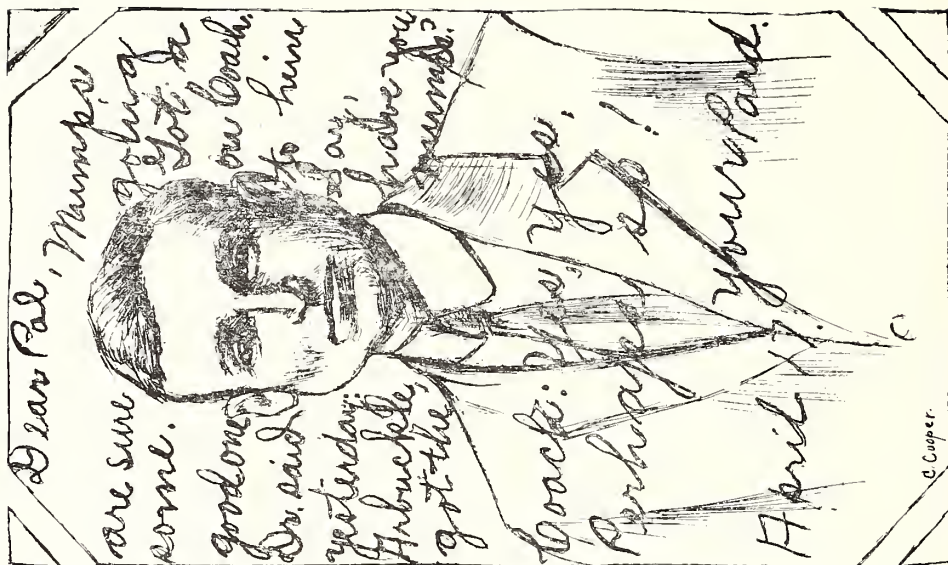 Dear Pal, Mumps
are sure going
some. Got a
good one on Coach.
Dr. said to him
yesterday:
Arbuckle, have you
got the mumps?
Coach: Yes, Yes,
Perhaps so!
April 17. Your Pard.
C. Cooper.